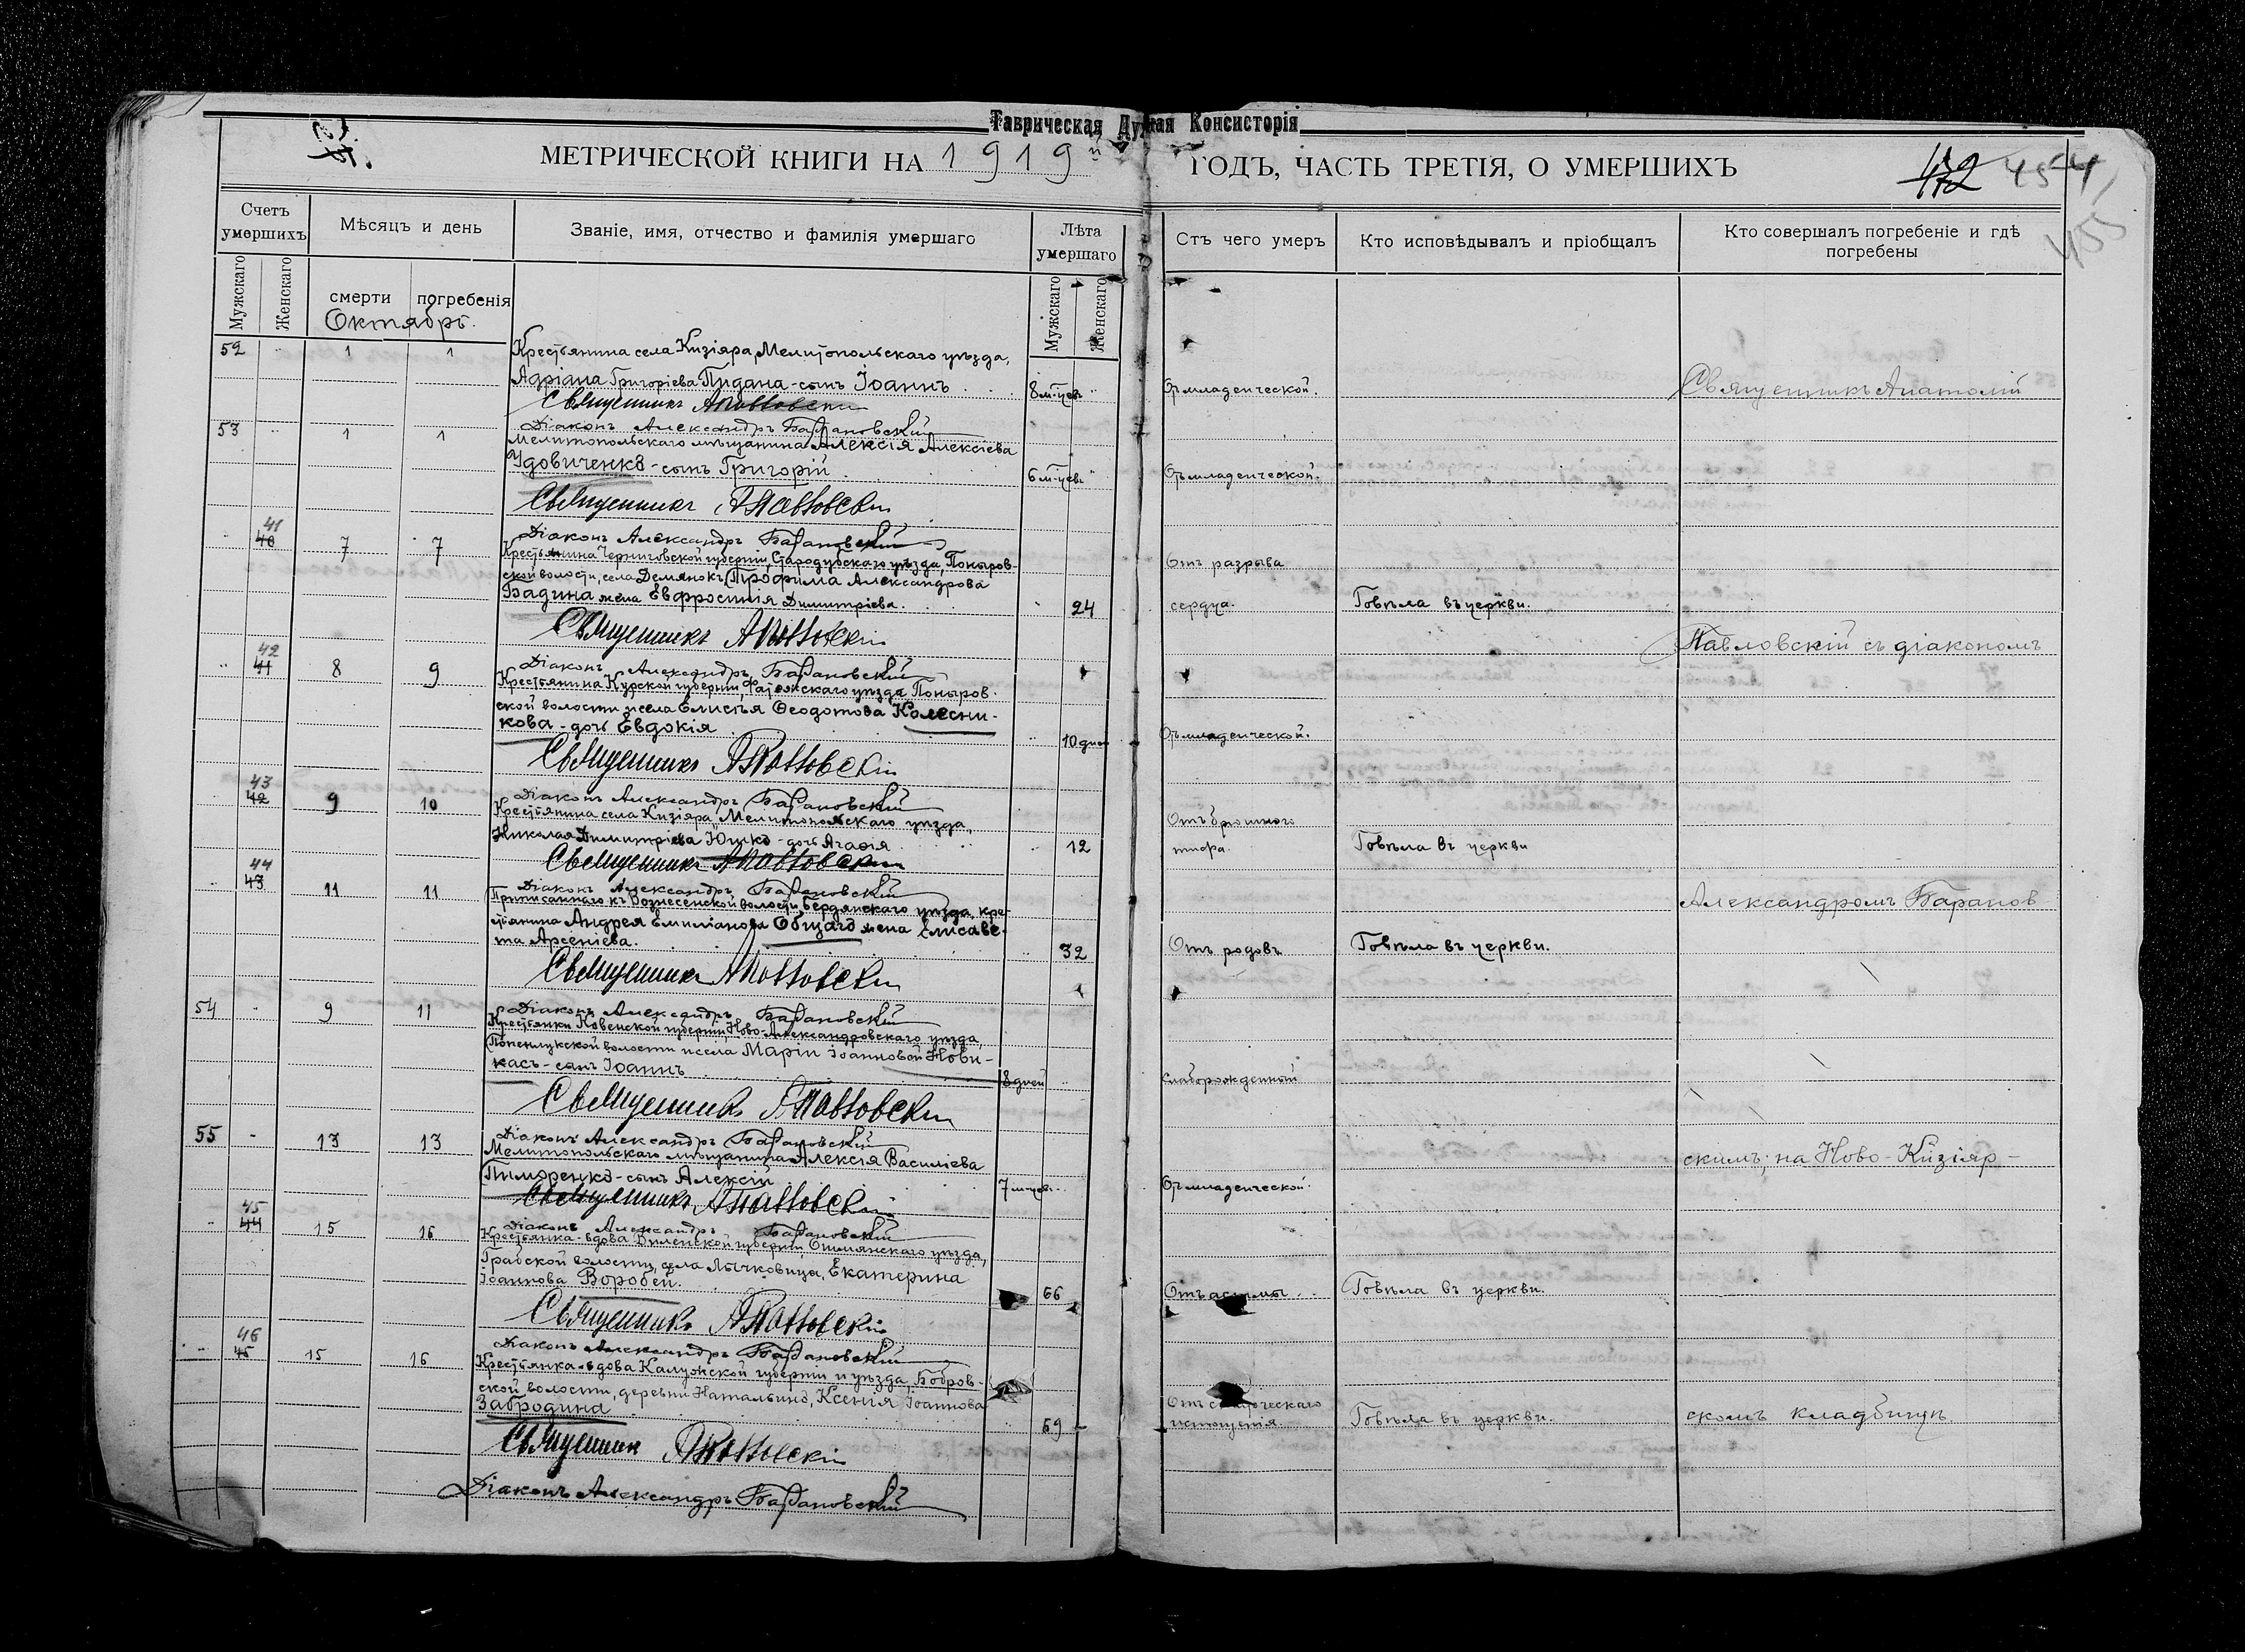 Таврическая Дух ная Консисторія
МЕТРИЧЕСКОЙ КНИГИ НА 1919й ГОДЪ, ЧАСТЬ ТРЕТІЯ, О УМЕРШИХЪ
454
455
Счетъ умершихъ
Мѣсяцъ и день
Званіе, имя, отчество и фамилія умершаго
Лѣта умершаго
Отъ чего умеръ
Кто исповѣдывалъ и пріобщалъ
Кто совершалъ погребеніе и гдѣ погребены
Мужскаго
Женскаго
смерти
погребенія
Мужскаго
Женскаго
Октябрь.
52 " 1 1 Крестьянина села Кизіяра, Мелитопольскаго уѣзда,
Адріана Григоріева Пидана - сынъ Іоаннъ 8 м-цевъ " Отъ младенческой. Священникъ Анатолій
Священникъ АПавловскій
Діаконъ Александръ Барановскій
53 " 1 1 Мелитопольскаго мѣщанина Алексія Алексіева
Удовиченко - сынъ Григорій 6 м-цевъ " Отъ младенческой.
Священникъ АПавловскій
Діаконъ Александръ Барановскій
" 41 40 7 7 Крестьянина Черниговской губерніи, Стародубскаго уѣзда, Понуров-
ской волости, села Демянокъ Трофима Александрова
Бадина жена Евфросинія Димитріева. " 24 Отъ разрыва сердца. Говѣла въ церкви.
Священникъ АПавловскій
Павловскій съ діакономъ
Діаконъ Александръ Барановскій
" 42 41 8 9 Крестьянина Курской губерніи, Фатежскаго уѣзда, Поныров-
ской волости и села Елисея Ѳеодотова Колесни-
кова - дочь Евдокія " 10 дней Отъ младенческой.
Священникъ АПавловскій
Діаконъ Александръ Барановскій
" 43 42 9 10 Крестьянина села Кизіяра, Мелитопольскаго уѣзда,
Николая Димитріева Юшко - дочь Агаѳія " 12 Отъ брюшного тифа. Говѣла въ церкви
Священникъ АПавловскій
Діаконъ Александръ Барановскій
" 44 43 11 11 Приписаннаго къ Вознесенской волости, Бердянскаго уѣзда, кре-
стьянина Андрея Емиліанова жена Елисаве-
та Арсеніева. " 32 Отъ родовъ Говѣла въ церкви.
Александромъ Баранов
Священникъ АПавловскій
Діаконъ Александръ Барановскій
54 " 9 11 Крестьянки Ковенской губерніи Ново-Александровскаго уѣзда,
волости и села Маріи Іоанновой Нови-
касъ - сынъ Іоаннъ 8 дней " Слаборожденный
Священникъ АПавловскій
Діаконъ Александръ Барановскій
55 " 13 13 Мелитопольскаго мѣщанина Алексія Василіева
Тиморенко - сынъ Алексій 7 м-цевъ " Отъ младенческой.
скимъ; на Ново-Кизіяр-
Священникъ АПавловскій
Діаконъ Александръ Барановскій
" 45 44 15 16 Крестьянка-вдова Виленской губерніи Ошмянскаго уѣзда,
волости, села Екатерина
Іоаннова Воробей. 66 Отъ астмы Говѣла въ церкви.
Священникъ АПавловскій
Діаконъ Александръ Барановскій
" 46 45 15 16 Крестьянка-вдова Калужской губерніи и уѣзда, Бобров-
ской волости, деревни Натальино, Ксенія Іоаннова
Забродина " 69 Отъ старческаго истощенія. Говѣла въ церкви. скомъ кладбищѣ.
Священникъ АПавловскій
Діаконъ Александръ Барановскій